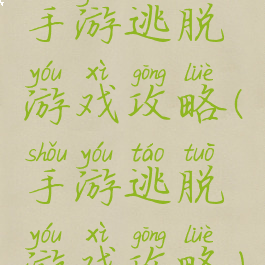 手游逃脱
yóu xì gōng lüè
游戏攻略(
shǒu yóu táo tuō
手游逃脱
yóu xì gōng lüè
游戏攻略)